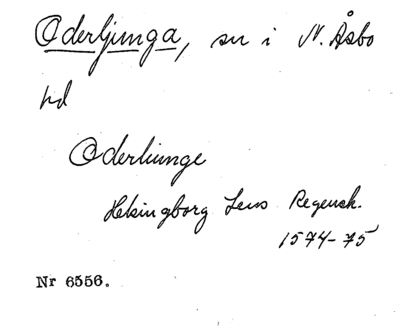 Oderljunga, sn i N. Åsbo
hd
Oderliunge
Helsingborg Lens Regensk.
1574-75
Nr 6556.